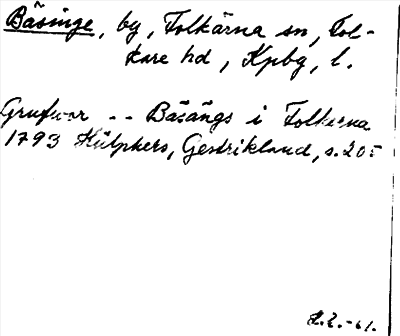 Bäsinge, by, Folkärna sn, Fol-
kare hd, Kpbg, l.
Grufvor -- Bäsängs i Folkerna
1793 Hülphers, Gestrikland, s. 205
L.E.-61.